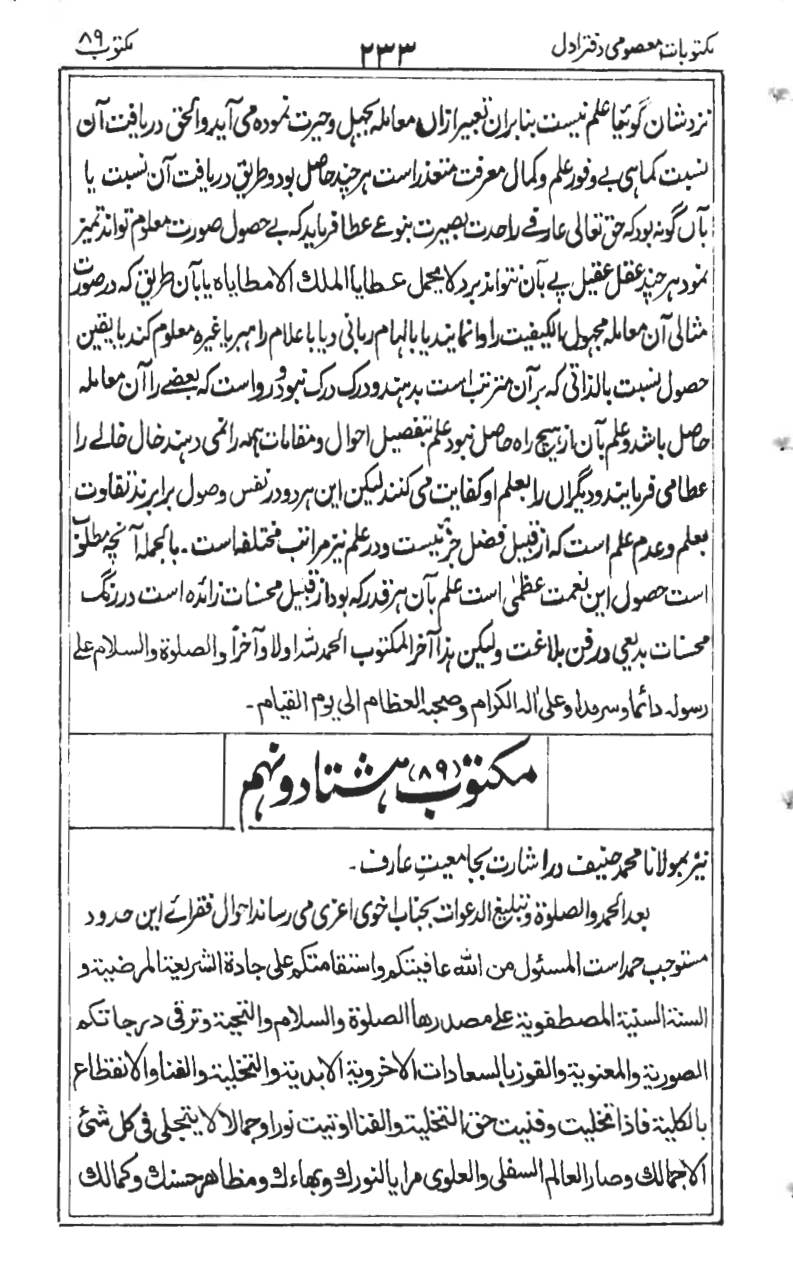 مکتوبات معصومی دفتر اول ۲۳۳ مکتوب ۸۹
نزد شان گوئیا علم نیست بنا بران تعبیر ازاں معامله بجهل و حیرت نموده می آید و الحق دریافت آن
نسبت کماهی بے وفور علم و کمال معرفت متعذر است هر چند حاصل بود و طریق دریافت آن نسبت یا
بآں گونه بود که حق تعالی عارفے را حدت بصیرت بنوعے عطا فرماید که بے حصول صورت معلوم تواند تمیز
نمود هر چند عقل عقیل پے بآن نتواند برد لا یحمل عطایا الملک الا مطایاه یا بآن طریق که در صورت
مثالی آن معامله مجهول الکیفیت را وا نمایند یا بالهام ربانی و یا با علام راهبر یا غیره معلوم کند یا یقین
حصول نسبت بالذاتی که بر آن مترتب است بدهند و درک درک نبود و رواست که بعضے را آن معامله
حاصل باشد و علم بآن از هیچ راه حاصل نبود علم بتفصیل احوال و مقامات همه را نمی دهند خال خالے را
عطا می فرمایند و دیگراں را بعلم او کفایت می کنند لیکن این هر دو در نفس وصول برابرند تفاوت
بعلم و عدم علم است که از قبیل فضل جزئیست و در علم نیز مراتب مختلفه است۔ بالجمله آنچه مطلوب
است حصول این نعمت عظمیٰ است علم بآن هر قدر که بود از قبیل محسنات زائده است در رنگ
محسنات بدیعی در فن بلاغت ولیکن هذا آخر المکتوب الحمد لله اولا و آخراً والصلوة والسلام علے
رسوله دائما و سرمدا و علیٰ اله الکرام و صحبه العظام الی یوم القیام۔
مکتوب (۸۹) هشتاد و نهم
نیز بمولانا محمد حنیف در اشارت بجامعیت عارف۔
بعد الحمد والصلوة و تبلیغ الدعوات بجناب اخوی اعزی می رساند احوال فقرائے این حدود
مستوجب حمد است المسئول من الله عافیتکم واستقامتکم علی جادة الشریعة المرضیة و
السنة السنیة المصطفویة علے مصدرها الصلوة والسلام والتحیة وترقی درجاتکم
الصوریة والمعنویة والفوز بالسعادات الاخرویة الابدیة والتخلیة والفنا والانقطاع
بالکلیة فاذا تخلیت وفنیت حق التخلیة والفنا اوتیت نورا وجمالا لا یتجلی فی کل شئ
الاجمالك وصار العالم السفلی والعلوی مرایا لنورك وبهاءك ومظاهر حسنك وکمالك